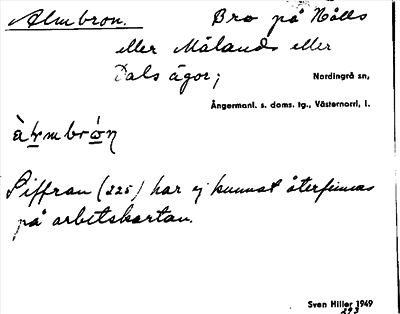 Almbron. Bro på Nälls
eller Mälands eller
Dals ägor;
Nordingrå sn,
Ångermanl. s. doms. tg., Västernorrl. l.
Siffran (225) har ej kunnat återfinnas
på arbetskartan.
Sven Hiller 1949
293